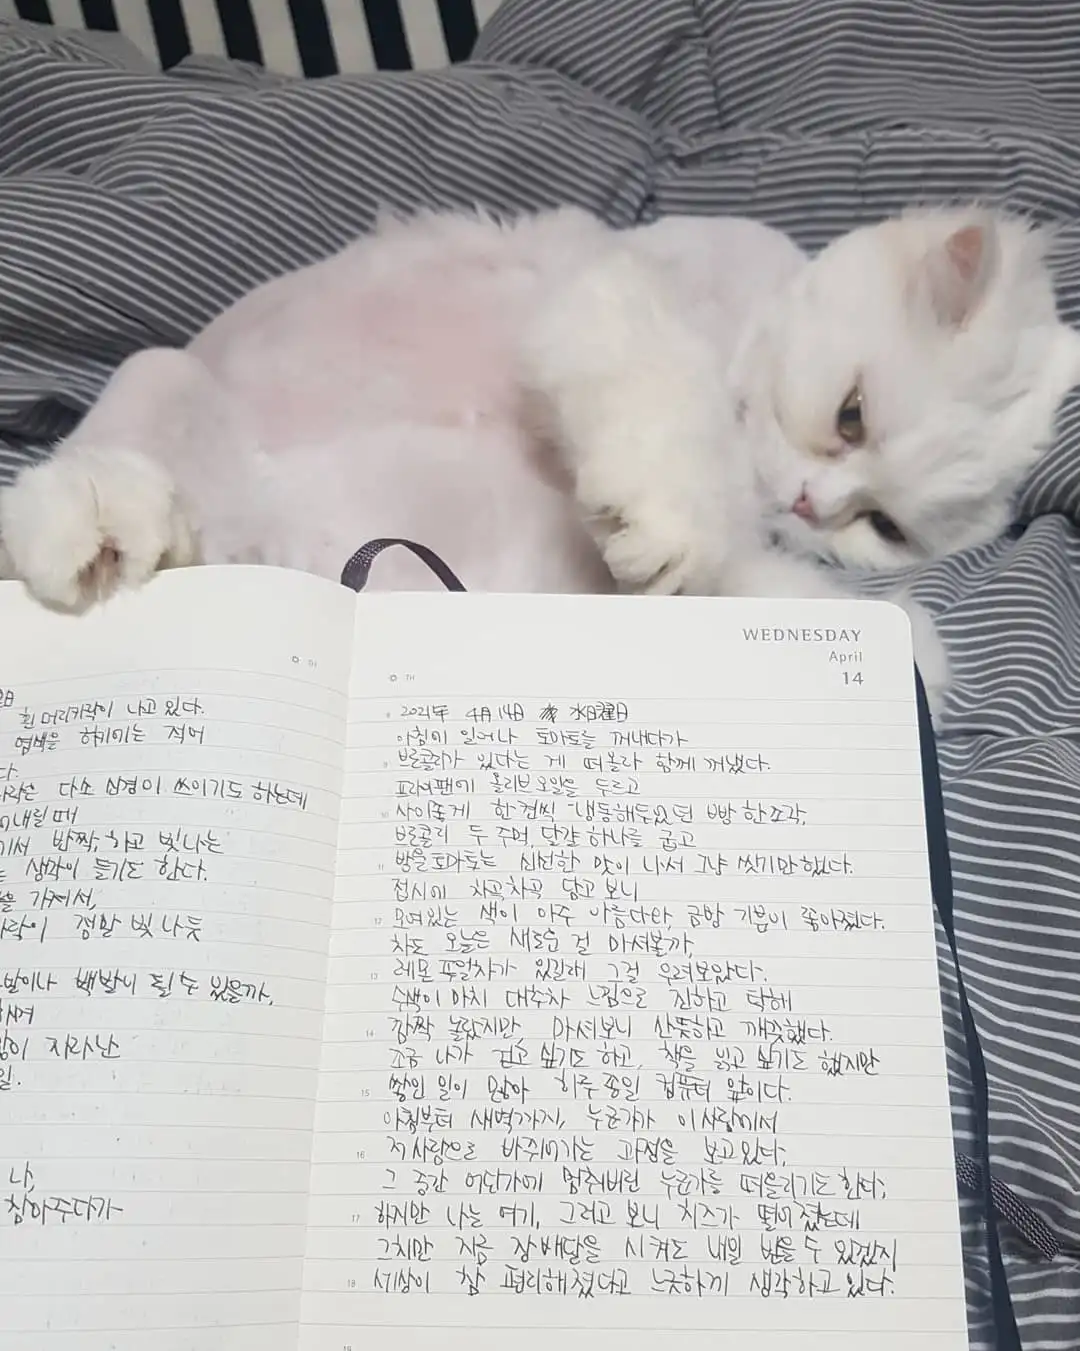 흰 머리카락이 나고 있다.
염색을 하기에는 적어
다.
다소 신경이 쓰이기도 하는데
내릴 때
에서 반짝, 하고 빛나는
생각이 들기도 한다.
을 가져서,
정말 빛나듯
백발이 될 수 있을까,
자라난
일.
나,
참아주다가
TH
TH
WEDNESDAY
April
14
8
2021年 4月 14日 水曜日
아침에 일어나 토마토를 꺼내다가
9 브로콜리가 있다는 게 떠올라 함께 꺼냈다.
프라이팬에 올리브오일을 두르고
10 사이좋게 한 겹씩 냉동해두었던 빵 한 조각,
브로콜리 두 주먹, 달걀 하나를 굽고
11 방울토마토는 신선한 맛이 나서 그냥 씻기만 했다.
접시에 차곡차곡 담고 보니
12 모여있는 색이 아주 아름다와, 금방 기분이 좋아졌다.
차도 오늘은 새로운 걸 마셔볼까,
13 레몬 푸얼차가 있길래 그걸 우려보았다.
수색이 마치 대추차 느낌으로 진하고 탁해
14 깜짝 놀랐지만, 마셔보니 산뜻하고 깨끗했다.
조금 나가 걷고 싶기도 하고, 책을 읽고 싶기도 했지만
15 쌓인 일이 많아 하루종일 컴퓨터 앞이다.
아침부터 새벽까지, 누군가가 이 사람에서
16 저 사람으로 바뀌어가는 과정을 보고 있다.
그 중간 어딘가에 멈춰버린 누군가를 떠올리기도 한다.
17 하지만 나는 여기, 그러고 보니 치즈가 떨어졌는데
그치만 지금 장 배달을 시켜도 내일 받을 수 있겠지
18 세상이 참 편리해졌다고 느긋하게 생각하고 있다.
19